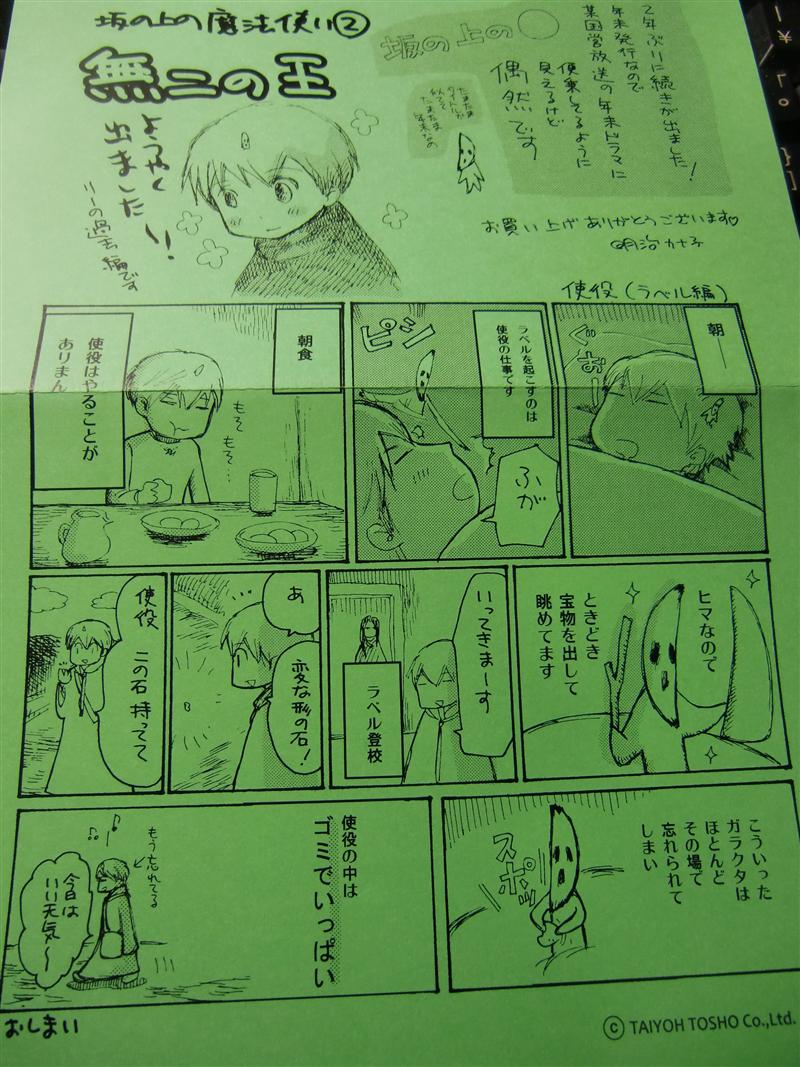 坂の上の魔法使い②
無二の王
ようやく
出ました!!
リーの過去編です
坂の上の
2年ぶりに続きが出ました!
年末発行なので
某国営放送の年末ドラマに
便乗してるように
見えるけど
偶然です
たまたま
タイトルが
似てて
たまたま
年末なの
お買い上げありがとうございます♡
明治カナ子
使役(ラベル編)
朝―
ぐおー
ラベルを起こすのは
使役の仕事です
ピシ
ふが
朝食
もそ
もそ…
使役はやることが
ありまん
ヒマなので
ときどき
宝物を出して
眺めてます
いってきまーす
ラベル登校
あ
変な形の石!
使役
この石持ってて
こういった
ガラクタは
ほとんど
その場で
忘れられて
しまい
スポッ
使役の中は
ゴミでいっぱい
もう忘れてる
今日は
いい天気～
おしまい
© TAIYOH TOSHO Co.,Ltd.